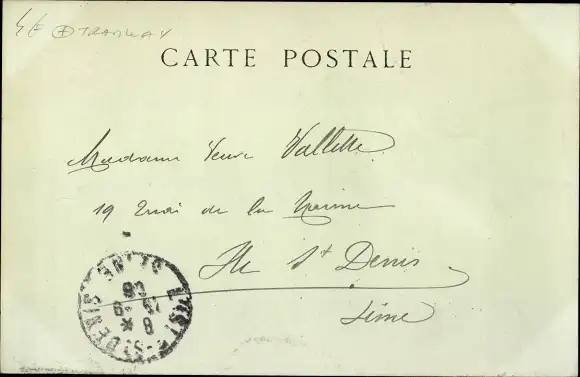 4€ + TRAMWAY
CARTE POSTALE
Madame Veuve Vallette
19 Quai de la Marine
Ile St Denis
Seine
L'ILE-ST-DENIS
SEINE